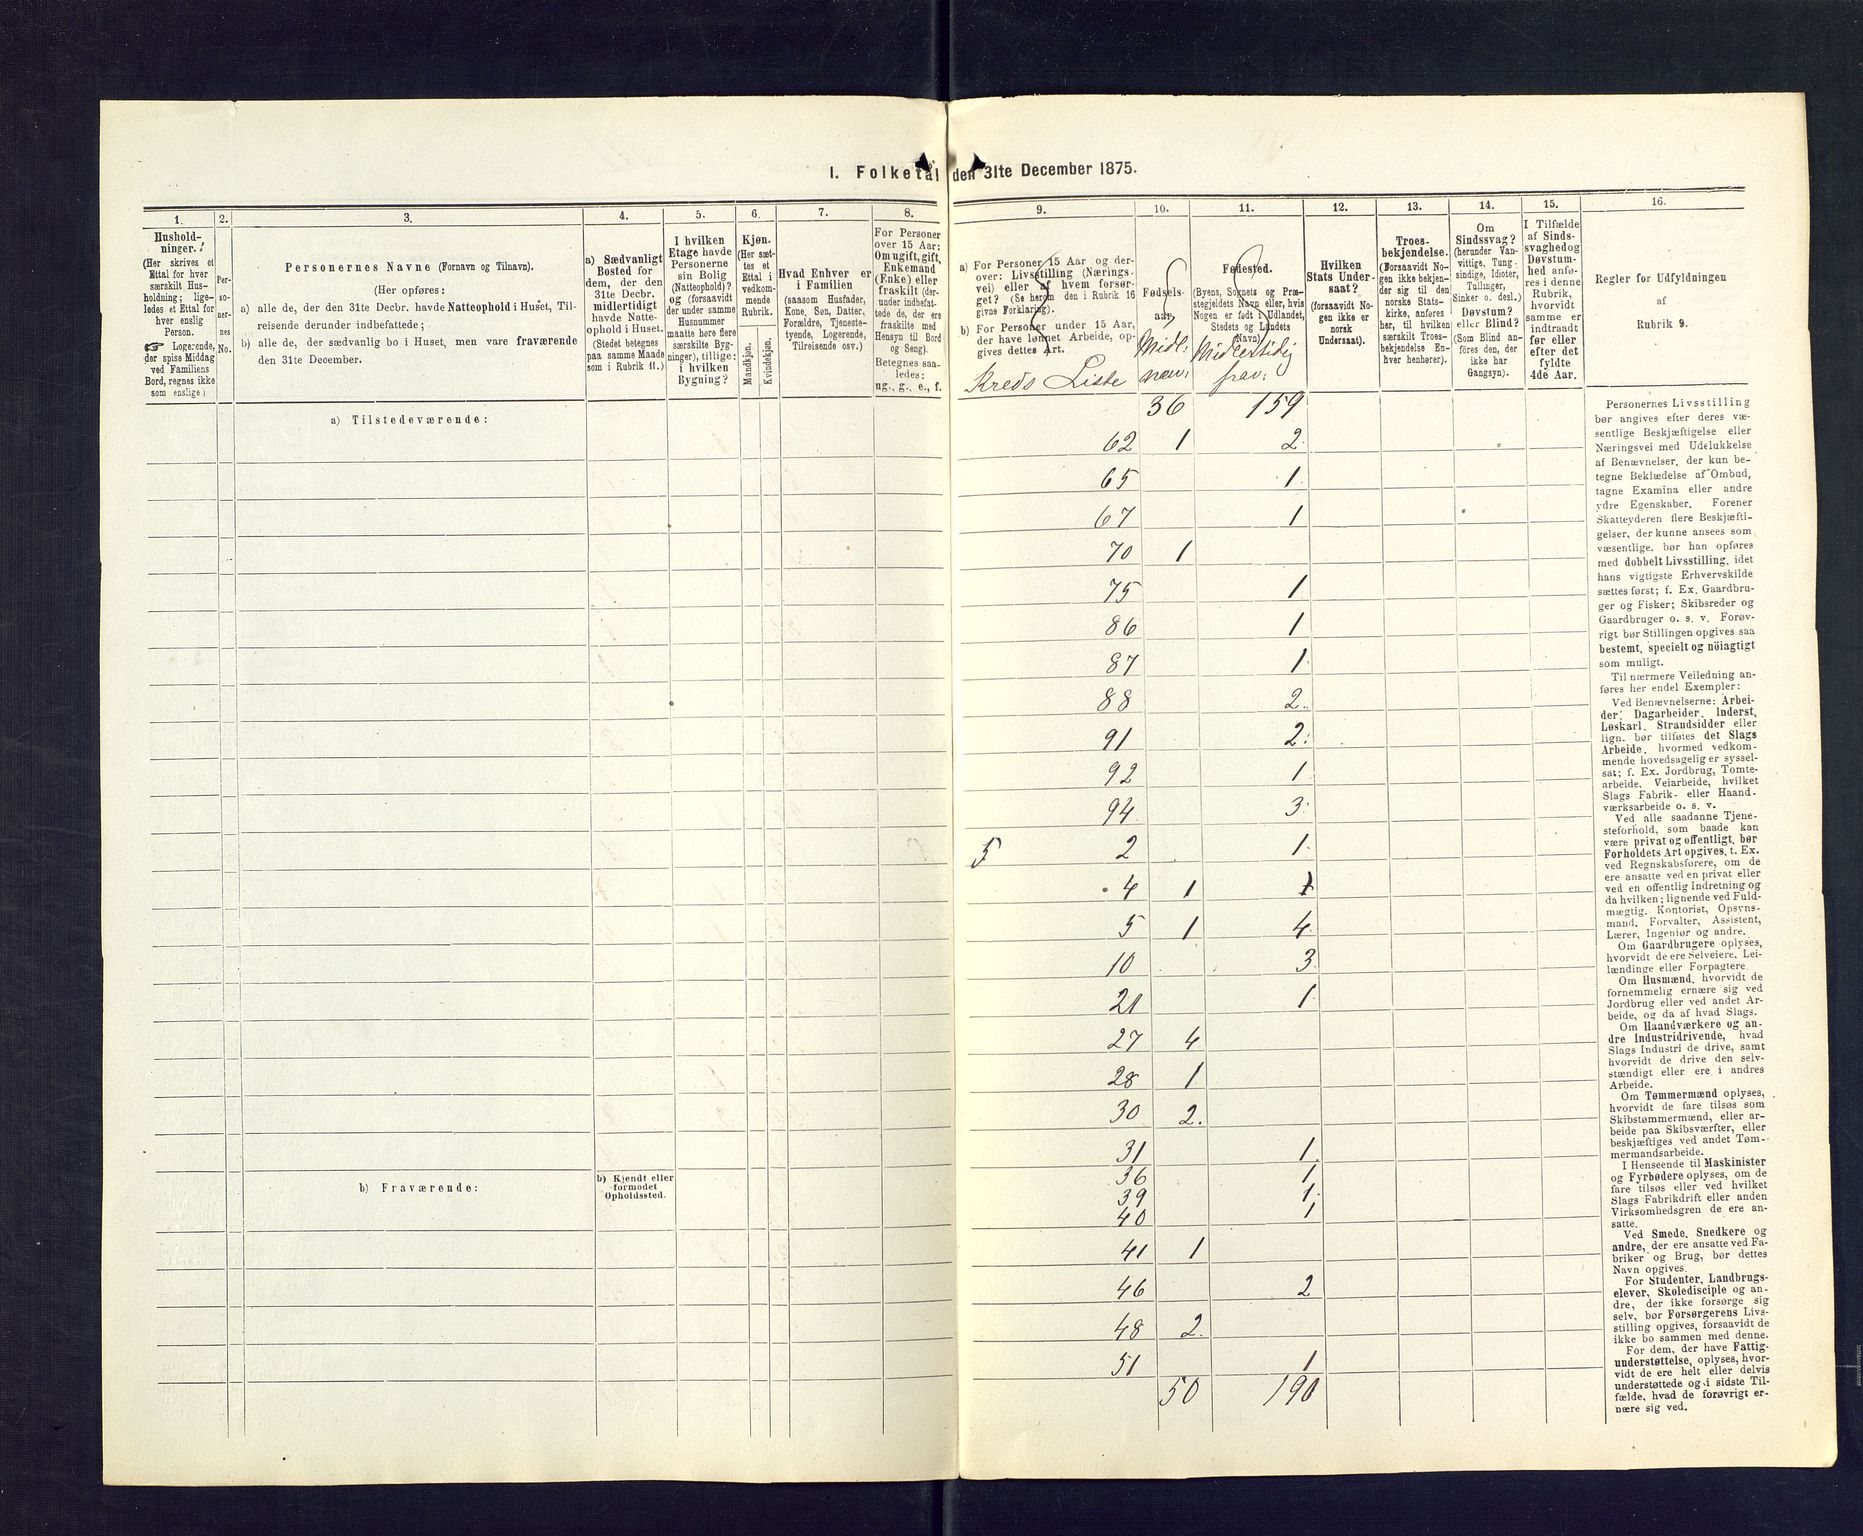 1. Folketal den 31te December 1875.
1.
2.
3.
4.
5.
6.
7.
8.
9.
10.
11.
12.
13.
14.
15.
16.
Hushold-
ninger.
(Her skrives et
Ettal for hver
særskilt Hus-
holdning; lige-
ledes et Ettal for
hver enslig
Person.
☞ Logerende,
der spise Middag
ved Familiens
Bord, regnes ikke
som enslige)
Per-
so-
ner-
nes
No.
Personernes Navne (Fornavn og Tilnavn).
(Her opføres:
a) alle de, der den 31te Decbr. havde Natteophold i Huset, Til-
reisende derunder indbefattede;
b) alle de, der sædvanlig bo i Huset, men vare fraværende
den 31te December.
a) Sædvanligt
Bosted for
dem, der den
31te Decbr.
midlertidigt
havde Natte-
ophold i Huset.
(Stedet betegnes
paa samme Maade
som i Rubrik 11.)
I hvilken
Etage havde
Personerne
sin Bolig
(Natteophold)?
og (forsaavidt
der under samme
Husnummer
maatte høre flere
særskilte Byg-
ninger), tillige:
i hvilken
Bygning?
Kjøn.
(Her sæt-
tes et
Ettal i
vedkom-
mende
Rubrik.
Mandkjøn.
Kvindekjøn.
Hvad Enhver er
i Familien
(saasom Husfader,
Kone, Søn, Datter,
Forældre, Tjeneste-
tyende, Logerende,
Tilreisende osv.)
For Personer
over 15 Aar:
Om ugift, gift,
Enkemand
(Enke) eller
fraskilt (der-
under indbefat-
tede de, der ere
fraskilte med
Hensyn til Bord
og Seng).
Betegnes saa-
ledes:
ug., g., e., f.
a) For Personer 15 Aar og der-
over: Livsstilling (Nærings-
vei) eller af hvem forsør-
get? (Se herom den i Rubrik 16
givne Forklaring).
b) For Personer under 15 Aar,
der have lønnet Arbeide, op-
gives dettes Art.
Kreds Liste
Fødsels-
aar.
Midl:
nær:
Fødested.
(Byens, Sognets og Præ-
stegjeldets Navn eller, hvis
Nogen er født i Udlandet,
Stedets og Landets
Navn)
Midlertidig
frav:
Hvilken
Stats Under-
saat?
(forsaavidt No-
gen ikke er
norsk
Undersaat).
Troes-
bekjendelse.
(Forsaavidt No-
gen ikke bekjen-
der sig til den
norske Stats-
kirke, anføres
her, til hvilken
særskilt Troes-
bekjendelse En-
hver henhører).
Om
Sindssvag?
(herunder Van-
vittige, Tung-
sindige, Idioter,
Tullinger,
Sinker o. desl.)
Døvstum?
eller Blind?
(Som Blind an-
føres den, der
ikke har
Gangsyn).
I Tilfælde
af Sinds-
svaghedog
Døvstum-
hed anfø-
res i denne
Rubrik,
hvorvidt
samme er
indtraadt
før eller
efter det
fyldte
4de Aar.
Regler for Udfyldningen
af
Rubrik 9.
a) Tilstedeværende:
36 159
62 1 2
65 1
67 1
70 1
75 1
86 1
87 1
88 2
91 2
92 1
94 3
5 2 1
4 1 1
5 1 4
10 3
21 1
27 4
28 1
30 2
31 1
36 1
39 1
40 1
41 1
46 2
48 2
51 1
50 190
b) Fraværende:
b) Kjendt eller
formodet
Opholdssted.
Personernes Livsstilling
bør angives efter deres væ-
sentlige Beskjæftigelse eller
Næringsvei med Udelukkelse
af Benævnelser, der kun be-
tegne Beklædelse af Ombud,
tagne Examina eller andre
ydre Egenskaber. Forener
Skatteyderen flere Beskjæfti-
gelser, der kunne ansees som
væsentlige, bør han opføres
med dobbelt Livsstilling, idet
hans vigtigste Erhvervskilde
sættes først; f. Ex. Gaardbru-
ger og Fisker; Skibsreder og
Gaardbruger o. s. v. Forøv-
rigt bør Stillingen opgives saa
bestemt, specielt og nöiagtigt
som muligt.
Til nærmere Veiledning an-
føres her endel Exempler:
Ved Benævnelserne: Arbei-
der, Dagarbeider, Inderst,
Løskarl, Strandsidder eller
lign. bør tilføies det Slags
Arbeide, hvormed vedkom-
mende hovedsagelig er syssel-
sat; f. Ex. Jordbrug, Tomte-
arbeide, Veiarbeide, hvilket
Slags Fabrik- eller Haand-
værksarbeide o. s. v.
Ved alle saadanne Tjene-
steforhold, som baade kan
være privat og offentligt, bør
Forholdets Art opgives, t. Ex.
ved Regnskabsførere, om de
ere ansatte ved en privat eller
ved en offentlig Indretning og
da hvilken; lignende ved Fuld-
mægtig, Kontorist, Opsyns-
mand, Forvalter, Assistent,
Lærer, Ingeniør og andre.
Om Gaardbrugere oplyses,
hvorvidt de ere Selveiere, Lei-
lændinge eller Forpagtere.
Om Husmænd, hvorvidt de
fornemmelig ernære sig ved
Jordbrug eller ved andet Ar-
beide, og da af hvad Slags.
Om Haandværkere og an-
dre Industridrivende, hvad
Slags Industri de drive, samt
hvorvidt de drive den selv-
stændigt eller ere i andres
Arbeide.
Om Tømmermænd oplyses,
hvorvidt de fare tilsøs som
Skibstømmermænd, eller ar-
beide paa Skibsværfter, eller
beskjæftiges ved andet Tøm-
mermandsarbeide.
I Henseende til Maskinister
og Fyrbødere oplyses, om de
fare tilsøs eller ved hvilket
Slags Fabrikdrift eller anden
Virksomhedsgren de ere an-
satte.
Ved Smede, Snedkere og
andre, der ere ansatte ved Fa-
briker og Brug, bør dettes
Navn opgives.
For Studenter, Landbrugs-
elever, Skoledisciple og an-
dre, der ikke forsørge sig
selv, bør Forsørgerens Livs-
stilling opgives, forsaavidt de
ikke bo sammen med denne.
For dem, der have Fattig-
understøttelse, oplyses, hvor-
vidt de ere helt eller delvis
understøttede og i sidste Til-
fælde, hvad de forøvrigt er-
nære sig ved.